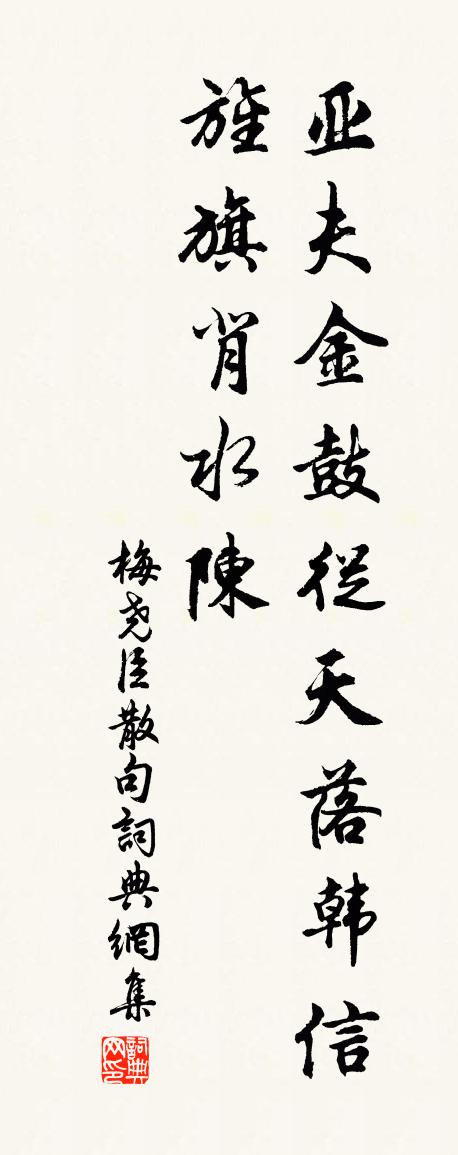 亚夫金鼓從天落韩信
旌旗背水陳
梅尧臣散句詞典網集
詞典
网印